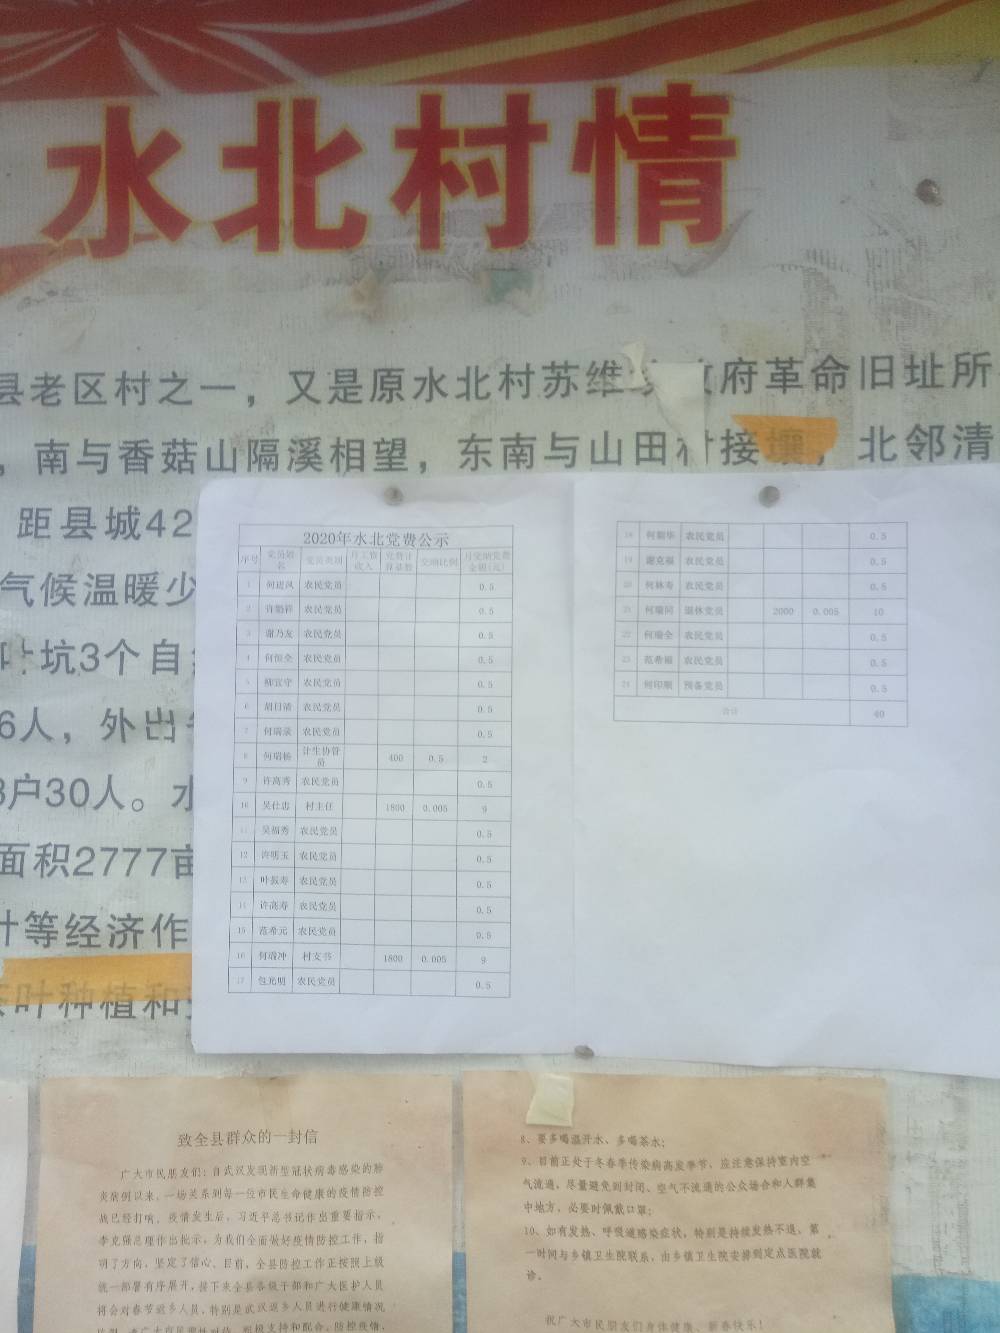 水北村情
县老区村之一，又是原水北村苏维 府革命旧址所
，南与香菇山隔溪相望，东南与山田村接壤，北邻清
距县城42
气候温暖少
叶坑3个自
6人，外出
3户30人。水
面积2777亩
叶等经济作
茶叶种植和
2020年水北党费公示
序号 党员姓名 党员类别 月工资收入 党费计算基数 交纳比例 月交纳党费金额(元)
1 何进凤 农民党员 0.5
2 农民党员 0.5
3 谢乃友 农民党员 0.5
4 何恒全 农民党员 0.5
5 柳宜守 农民党员 0.5
6 胡日清 农民党员 0.5
7 何瑞录 农民党员 0.5
8 何瑞杨 计生协管员 400 0.5 2
9 许高秀 农民党员 0.5
10 吴仕忠 村主任 1800 0.005 9
11 吴福秀 农民党员 0.5
12 许明玉 农民党员 0.5
13 叶振寿 农民党员 0.5
14 许高寿 农民党员 0.5
15 范希元 农民党员 0.5
16 何瑞冲 村支书 1800 0.005 9
17 包光明 农民党员 0.5
18 何朝华 农民党员 0.5
19 谢克福 农民党员 0.5
20 何林寿 农民党员 0.5
21 何瑞同 退休党员 2000 0.005 10
22 何瑞全 农民党员 0.5
23 范希福 农民党员 0.5
24 何印顺 预备党员 0.5
合计 40
致全县群众的一封信
广大市民朋友们：自武汉发现新型冠状病毒感染的肺
炎病例以来，一场关系到每一位市民生命健康的疫情防控
战已经打响。疫情发生后，习近平总书记作出重要指示，
李克强总理作出批示，为我们全面做好疫情防控工作，指
明了方向，坚定了信心。目前，全县防控工作正按照上级
统一部署有序展开，接下来全县各级干部和广大医护人员
将会对春节返乡人员，特别是武汉返乡人员进行健康情况
积极支持和配合。防控疫情，
8、要多喝温开水、多喝茶水；
9、目前正处于冬春季传染病高发季节，应注意保持室内空
气流通，尽量避免到封闭、空气不流通的公众场合和人群集
中地方，必要时佩戴口罩；
10、如有发热、呼吸道感染症状，特别是持续发热不退，第
一时间与乡镇卫生院联系，由乡镇卫生院安排到定点医院就
诊。
祝广大市民朋友们身体健康、新春快乐！